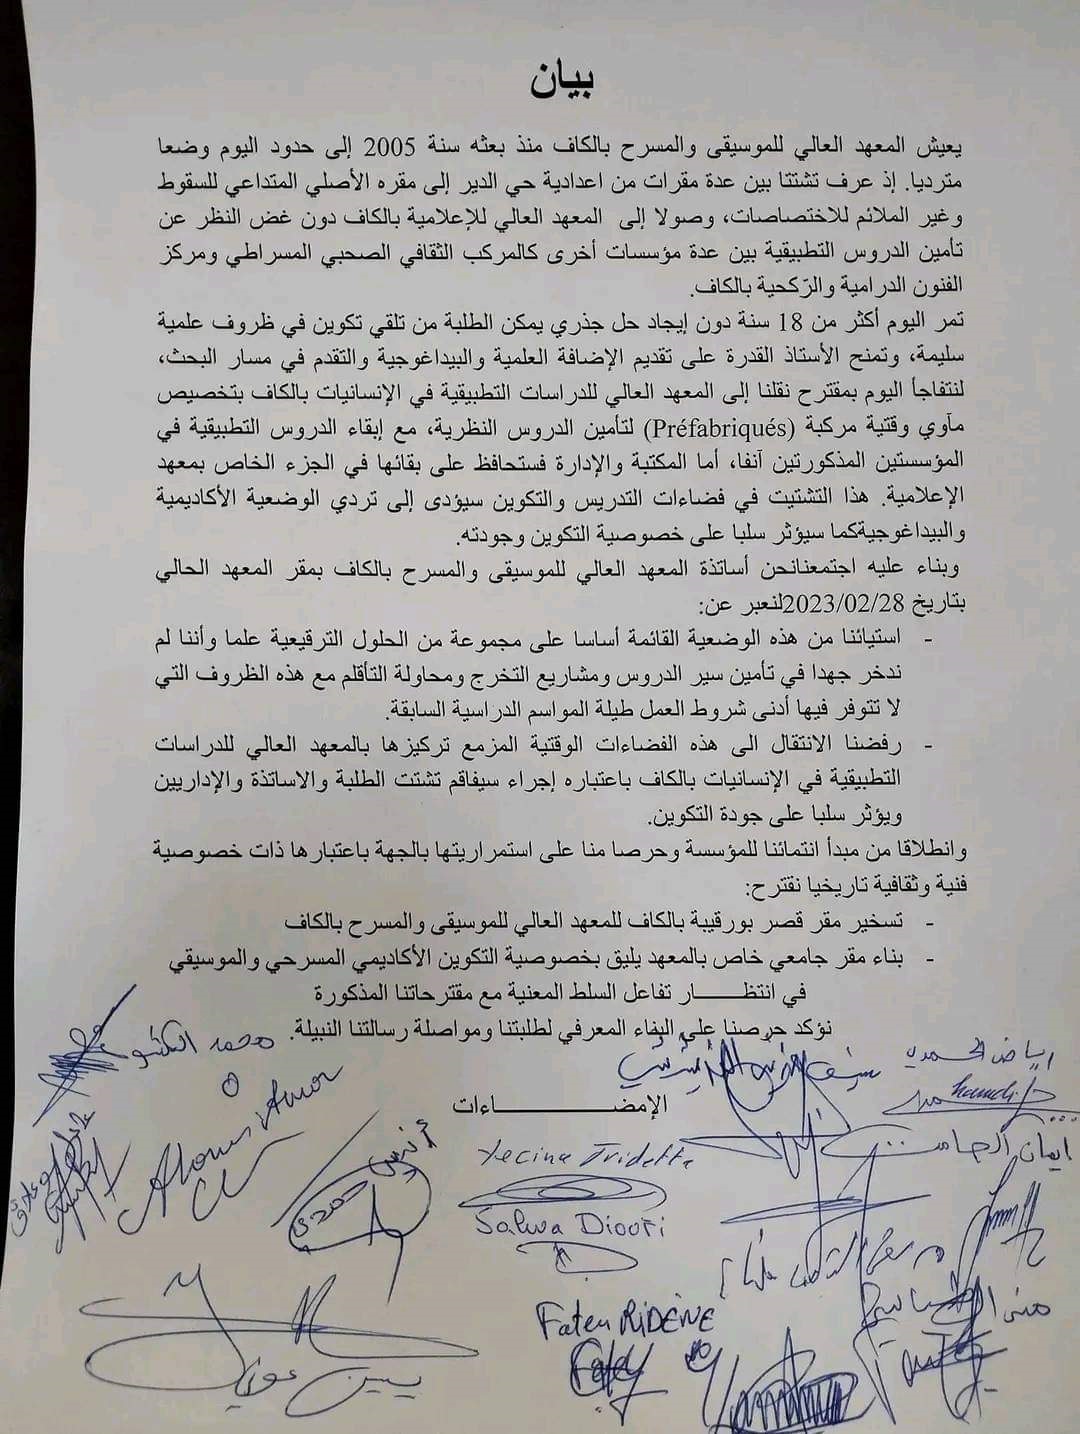 بيان
يعيش المعهد العالي للموسيقى والمسرح بالكاف منذ بعثه سنة 2005 إلى حدود اليوم وضعا
مترديا. إذ عرف تشتتا بين عدة مقرات من اعدادية حي الدير إلى مقره الأصلي المتداعي للسقوط
وغير الملائم للاختصاصات، وصولا إلى المعهد العالي للإعلامية بالكاف دون غض النظر عن
تأمين الدروس التطبيقية بين عدة مؤسسات أخرى كالمركب الثقافي الصحبي المسراطي ومركز
الفنون الدرامية والرّكحية بالكاف.
تمر اليوم أكثر من 18 سنة دون إيجاد حل جذري يمكن الطلبة من تلقي تكوين في ظروف علمية
سليمة، وتمنح الأستاذ القدرة على تقديم الإضافة العلمية والبيداغوجية والتقدم في مسار البحث،
لنتفاجأ اليوم بمقترح نقلنا إلى المعهد العالي للدراسات التطبيقية في الإنسانيات بالكاف بتخصيص
مآوي وقتية مركبة (Préfabriqués) لتأمين الدروس النظرية، مع إبقاء الدروس التطبيقية في
المؤسستين المذكورتين آنفا، أما المكتبة والإدارة فستحافظ على بقائها في الجزء الخاص بمعهد
الإعلامية. هذا التشتيت في فضاءات التدريس والتكوين سيؤدى إلى تردي الوضعية الأكاديمية
والبيداغوجيةكما سيؤثر سلبا على خصوصية التكوين وجودته.
وبناء عليه اجتمعنانحن أساتذة المعهد العالي للموسيقى والمسرح بالكاف بمقر المعهد الحالي
بتاريخ 2023/02/28لنعبر عن:
- استيائنا من هذه الوضعية القائمة أساسا على مجموعة من الحلول الترقيعية علما وأننا لم
ندخر جهدا في تأمين سير الدروس ومشاريع التخرج ومحاولة التأقلم مع هذه الظروف التي
لا تتوفر فيها أدنى شروط العمل طيلة المواسم الدراسية السابقة.
- رفضنا الانتقال الى هذه الفضاءات الوقتية المزمع تركيزها بالمعهد العالي للدراسات
التطبيقية في الإنسانيات بالكاف باعتباره إجراء سيفاقم تشتت الطلبة والاساتذة والإداريين
ويؤثر سلبا على جودة التكوين.
وانطلاقا من مبدأ انتمائنا للمؤسسة وحرصا منا على استمراريتها بالجهة باعتبارها ذات خصوصية
فنية وثقافية تاريخيا نقترح:
- تسخير مقر قصر بورقيبة بالكاف للمعهد العالي للموسيقى والمسرح بالكاف
- بناء مقر جامعي خاص بالمعهد يليق بخصوصية التكوين الأكاديمي المسرحي والموسيقي
في انتظـــــار تفاعل السلط المعنية مع مقترحاتنا المذكورة
نؤكد حرصنا على البناء المعرفي لطلبتنا ومواصلة رسالتنا النبيلة.
محمد
رياض الحمدي
hamdi
الإمضـــــــــــاءات
أنس حمدي
Yecina Tridetta
إيمان
Salwa Diouri
Faten RIDENE
منى
يسين